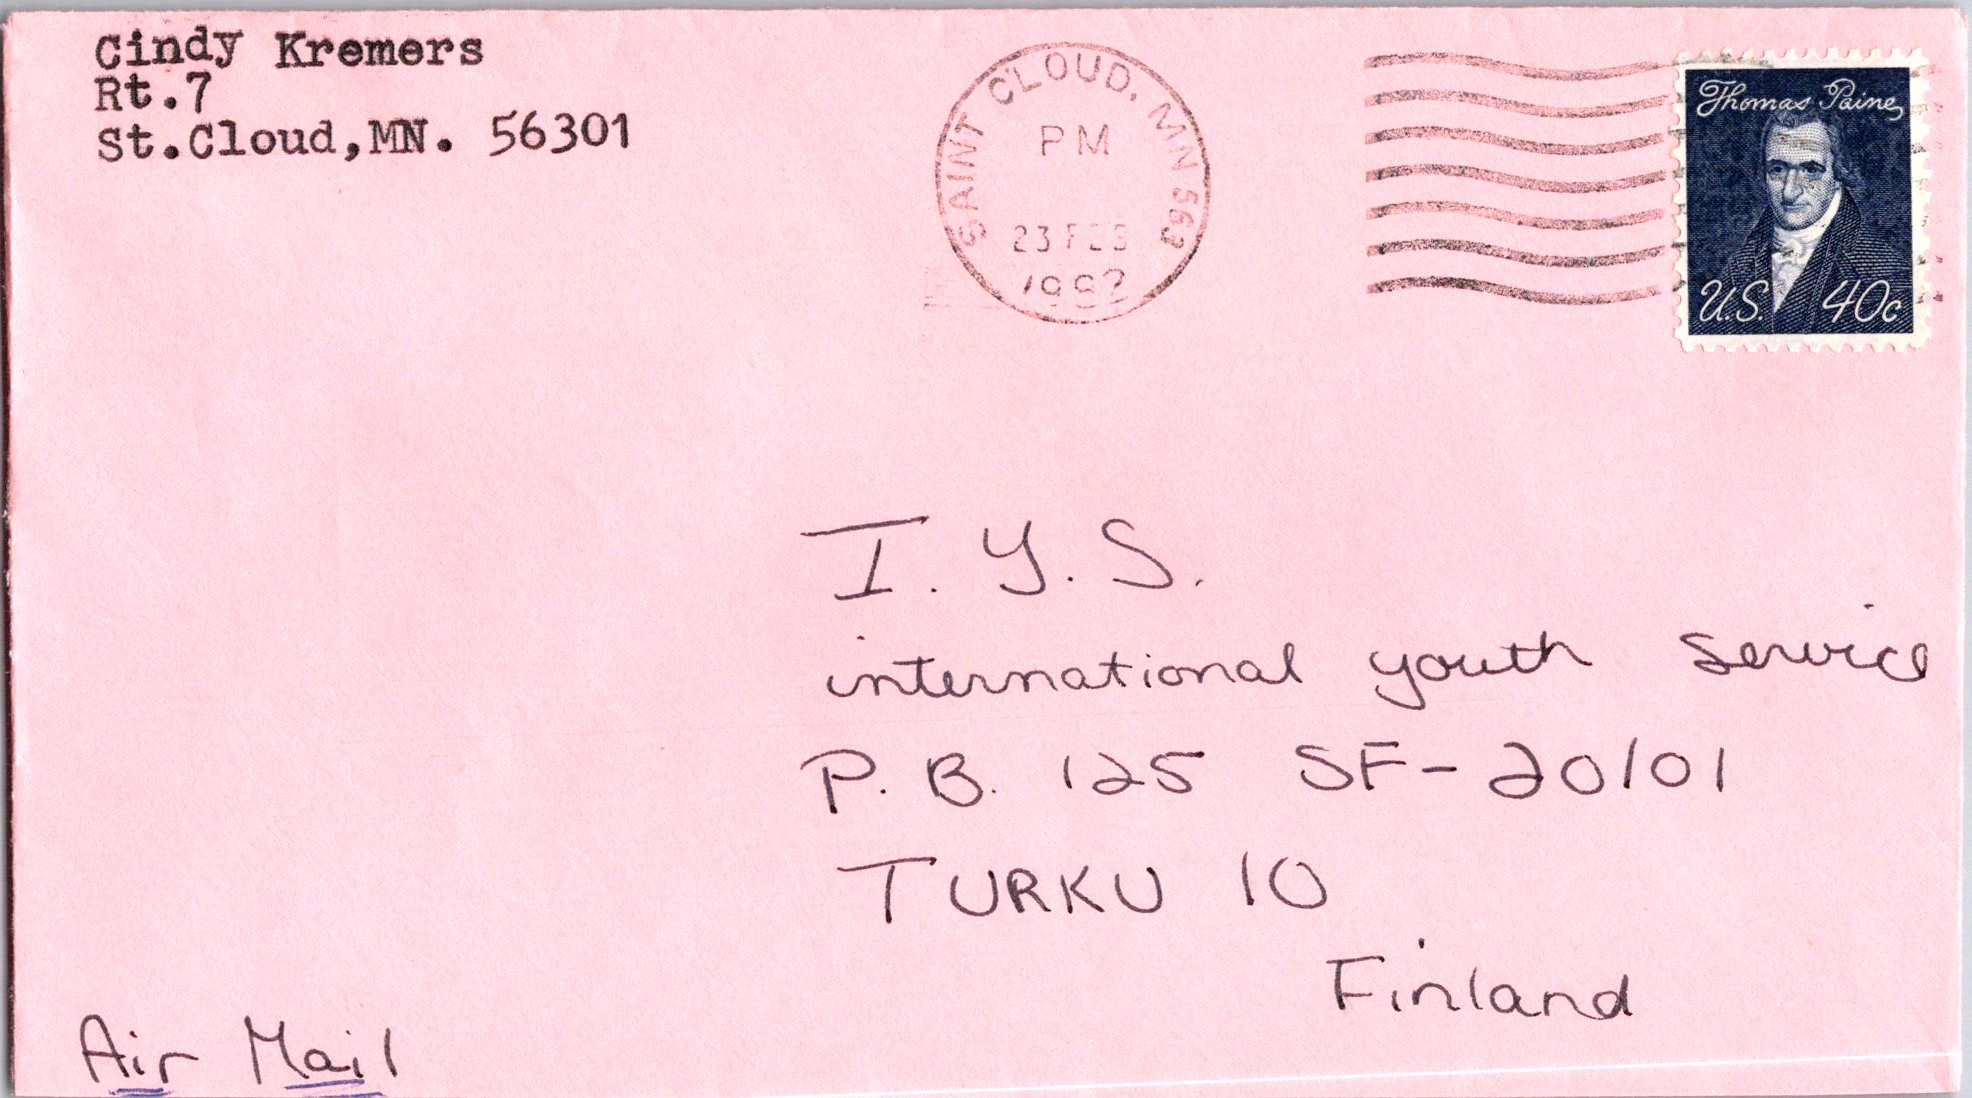 Cindy Kremers
Rt.7
St.Cloud,MN. 56301
SAINT CLOUD, MN 563
PM
23 FEB
Thomas Paine
U.S. 40c
I. Y. S.
international youth service
P. B. 125 SF-20101
TURKU 10
Finland
Air Mail